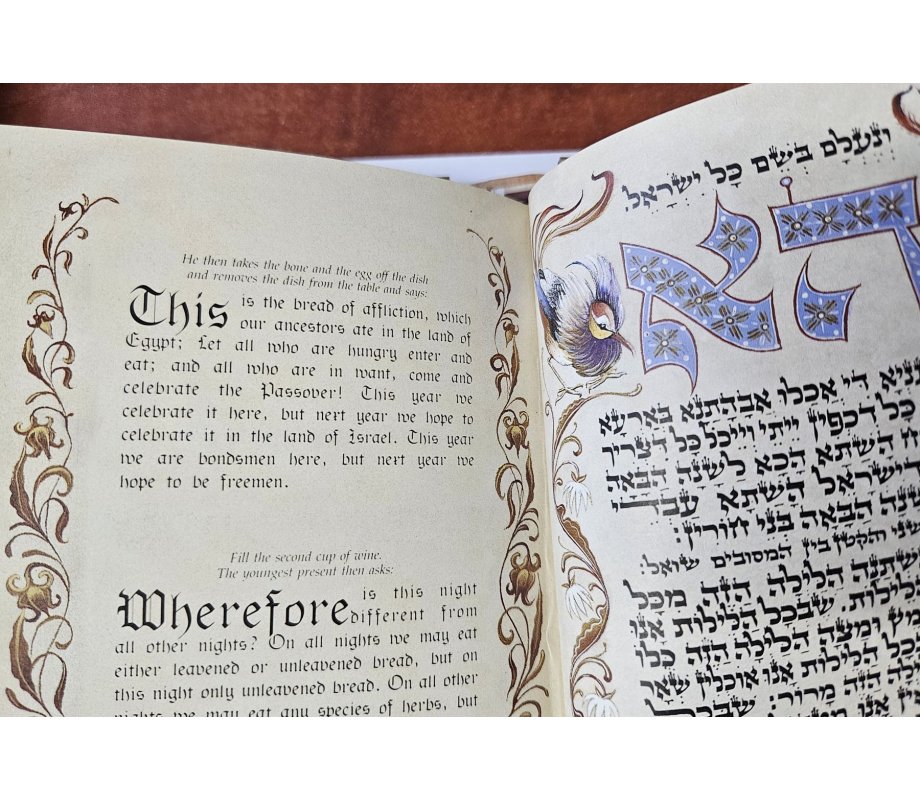 He then takes the bone and the egg off the dish
and removes the dish from the table and says:
This is the bread of affliction, which
our ancestors ate in the land of
Egypt; Let all who are hungry enter and
eat; and all who are in want, come and
celebrate the Passover! This year we
celebrate it here, but next year we hope to
celebrate it in the land of Israel. This year
we are bondsmen here, but next year we
hope to be freemen.
Fill the second cup of wine.
The youngest present then asks:
Wherefore is this night
different from
all other nights? On all nights we may eat
either leavened or unleavened bread, but on
this night only unleavened bread. On all other
nights we may eat any species of herbs, but
וְנֶעְלָם בְּשֵׁם כָּל יִשְׂרָאֵל.
הָא
די אכלו אבהתנא בארעא
כל דכפין ייתי וייכל כל דצריך
השתא הכא לשנה הבאה
דישראל השתא עבדי
הבאה בני חורין:
והקטן בין המסובים שואל:
הלילה הזה מכל
שבכל הלילות אנו
ומצה הלילה הזה כלו
הלילות אנו אוכלין שאר
הזה מרור. שבכל
אנו